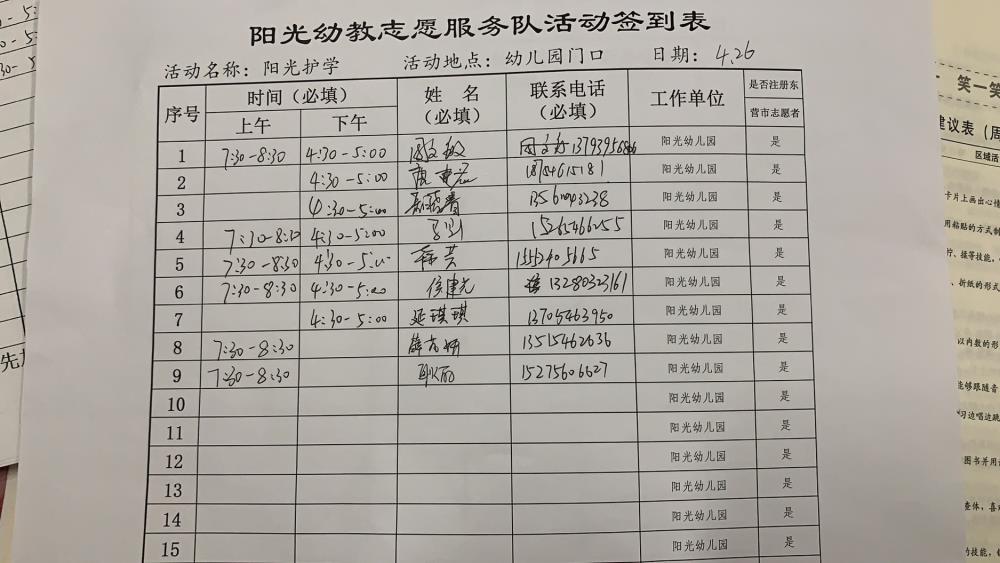 阳光幼教志愿服务队活动签到表
活动名称：阳光护学 活动地点：幼儿园门口 日期：4.26
序号 时间（必填） 姓名（必填） 联系电话（必填） 工作单位 是否注册东营市志愿者
上午 下午
1 7:30-8:30 4:30-5:00 阳光幼儿园 是
2 4:30-5:00 18754615181 阳光幼儿园 是
3 4:30-5:00 阳光幼儿园 是
4 7:30-8:30 4:30-5:00 15265466255 阳光幼儿园 是
5 7:30-8:30 4:30-5:00 阳光幼儿园 是
6 7:30-8:30 4:30-5:00 侯建光 13280323161 阳光幼儿园 是
7 4:30-5:00 延琪琪 13705463950 阳光幼儿园 是
8 7:30-8:30 13515462636 阳光幼儿园 是
9 7:30-8:30 耿丽 15275606627 阳光幼儿园 是
10 阳光幼儿园 是
11 阳光幼儿园 是
12 阳光幼儿园 是
13 阳光幼儿园 是
14 阳光幼儿园 是
15 阳光幼儿园 是
笑一笑
建议表（周
区域活
卡片上画出心情
用粘贴的方式制
拧、搓等技能，
、折纸的形式
以内数的形
能够跟随音
学习边唱边跳
图书并用
查体，喜
的技能，